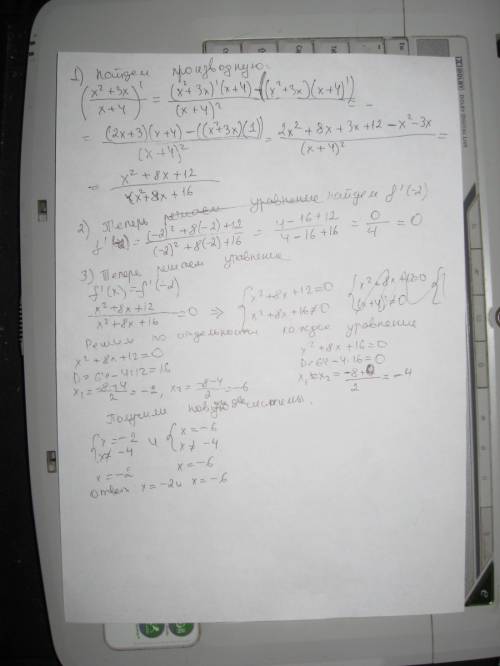 1) Найдем производную:
((x²+3x)/(x+4))' = ((x²+3x)'(x+4) - ((x²+3x)(x+4)'))/(x+4)² =
= ((2x+3)(x+4) - ((x²+3x)(1))/(x+4)² = (2x²+8x+3x+12-x²-3x)/(x+4)² =
= (x²+8x+12)/(x²+8x+16)
2) Теперь решаем уравнение найдем f'(-2)
f'(-2) = ((-2)²+8(-2)+12)/((-2)²+8(-2)+16) = (4-16+12)/(4-16+16) = 0/4 = 0
3) Теперь решаем уравнение
f'(x) = f'(-2)
(x²+8x+12)/(x²+8x+16) = 0 ⇒ { x²+8x+12=0 { x²+8x+12=0 {
{ x²+8x+16≠0 { (x+4)²≠0
Решим по отдельности каждое уравнение
x²+8x+12=0 x²+8x+16=0
D=64-4·12=16 D=64-4·16=0
x₁=(-8+4)/2=-2, x₂=(-8-4)/2=-6 x₁=x₂=(-8+0)/2=-4
Получили две системы.
{ x=-2 и { x=-6
{ x≠-4 { x≠-4
x=-2 x=-6
Ответ x=-2 и x=-6